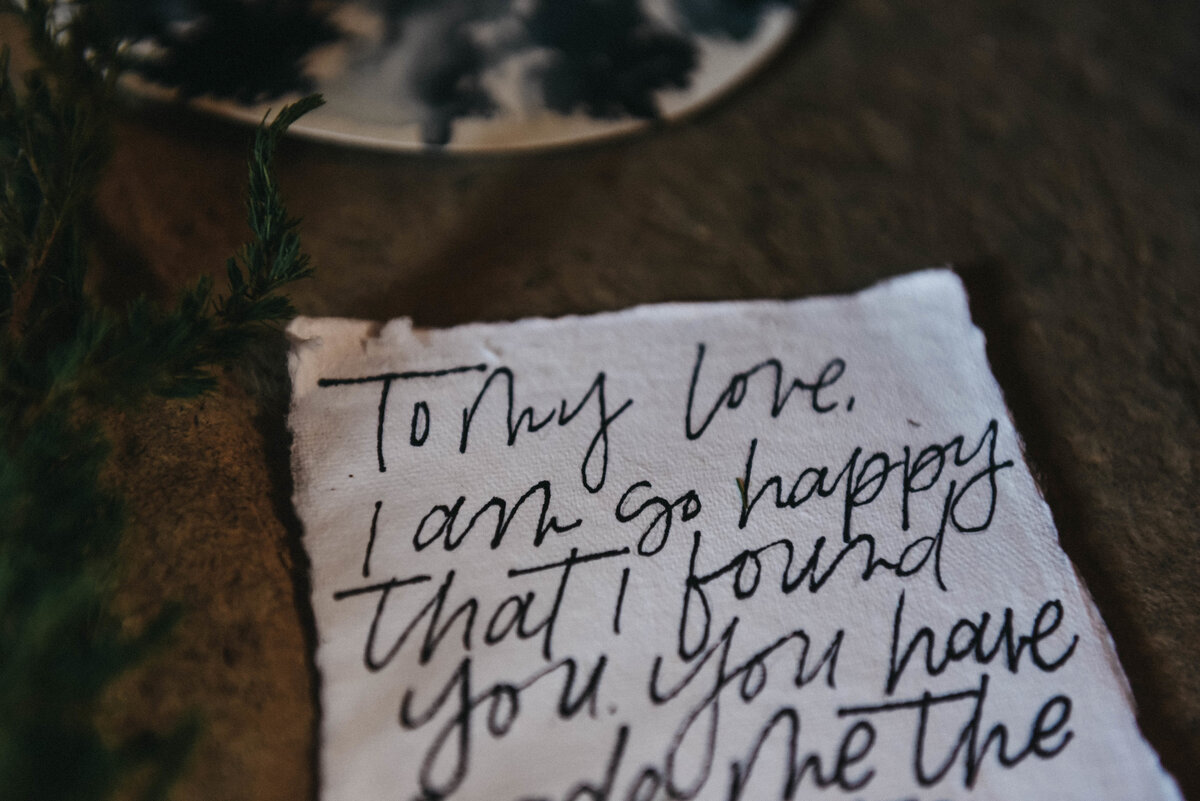 To my love,
I am so happy
that I found
you. You have
made me the